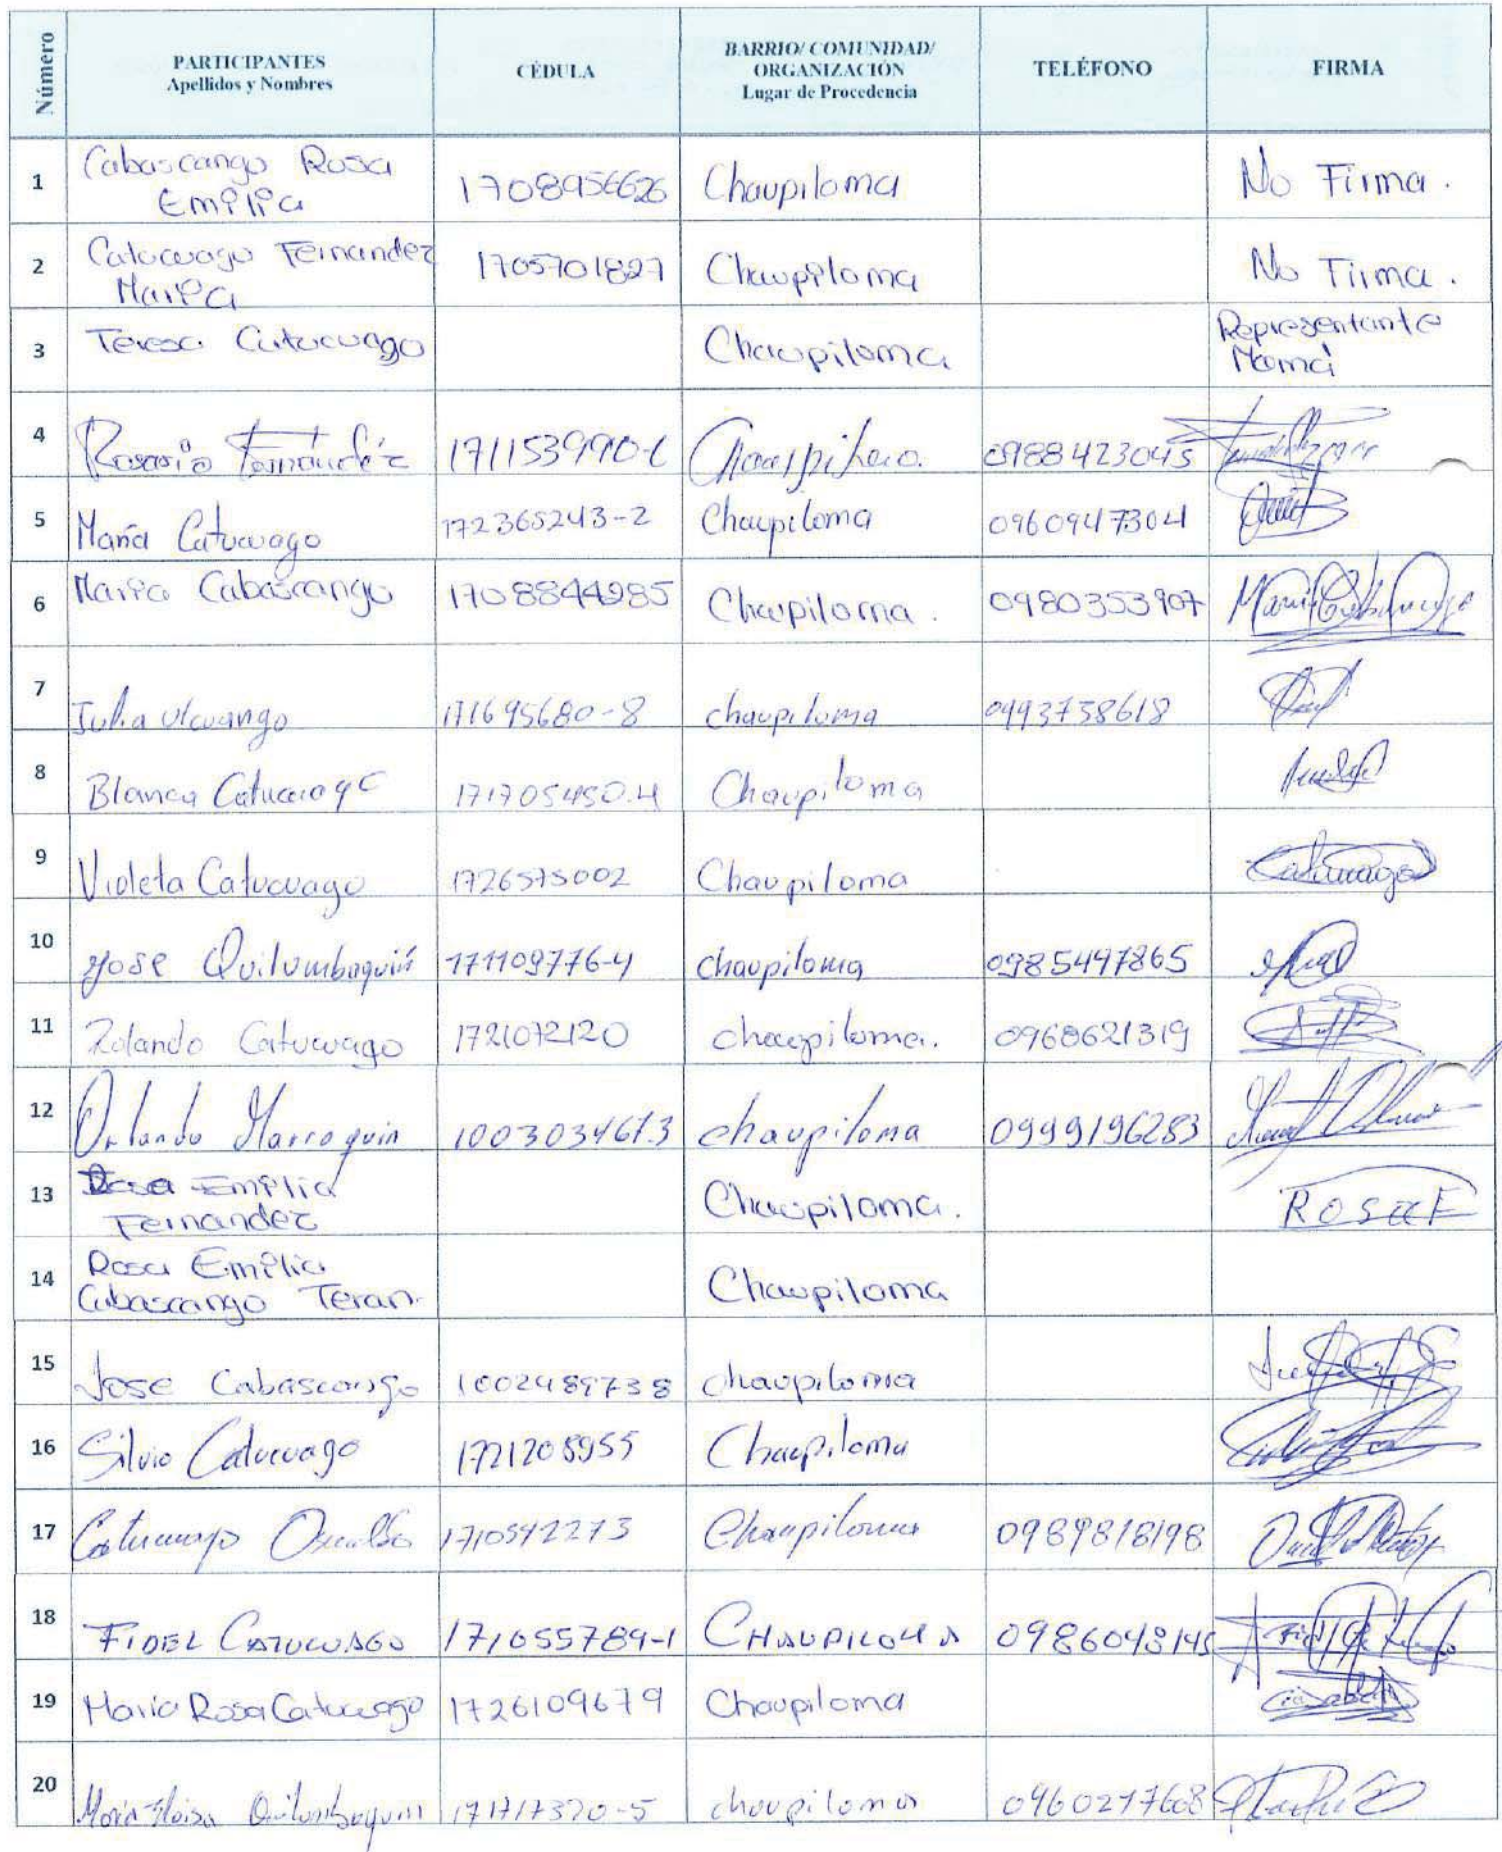 Número
PARTICIPANTES
Apellidos y Nombres
CÉDULA
BARRIO/ COMUNIDAD/
ORGANIZACIÓN
Lugar de Procedencia
TELÉFONO
FIRMA
1
Cabascango Rosa
Emilia
1708956626
Chaupiloma
No Firma.
2
Catucuago Fernandez
Maria
1705701827
Chaupiloma
No Firma.
3
Teresa Catucuago
Chaupiloma
Representante
Mamá
4
Rosario Fernández
0988423045
5
María Catucuago
172365243-2
Chaupiloma
0960947304
6
Maria Cabascango
1708844985
Chaupiloma.
0980353907
7
Julia Ulcuango
171695680-8
chaupiloma
0993758618
8
Blanca Catucuago
171705450.4
Chaupiloma
9
Violeta Catucuago
1726575002
Chaupiloma
Catucuago
10
Jose Quilumbaquin
171109776-4
chaupiloma
0985497865
11
Rolando Catucuago
1721072120
chaupiloma.
0960621319
12
Orlando Marroquin
100303467.3
chaupiloma
0999196283
13
Rosa Emilia
Fernandez
Chaupiloma.
14
Rosa Emilia
Cabascango Teran.
Chaupiloma
15
Jose Cabascango
1002489738
chaupiloma
16
Silvio Catucuago
1721208955
Chaupiloma
17
Catucuago Oswaldo
1710592273
Chaupiloma
0989818198
18
FIDEL CATUCUAGO
171055789-1
CHAUPILOMA
0986048145
19
Maria Rosa Catucuago
1726109679
Chaupiloma
20
Maria Eloisa Quilumbaquin
171717320-5
chaupiloma
0960277608